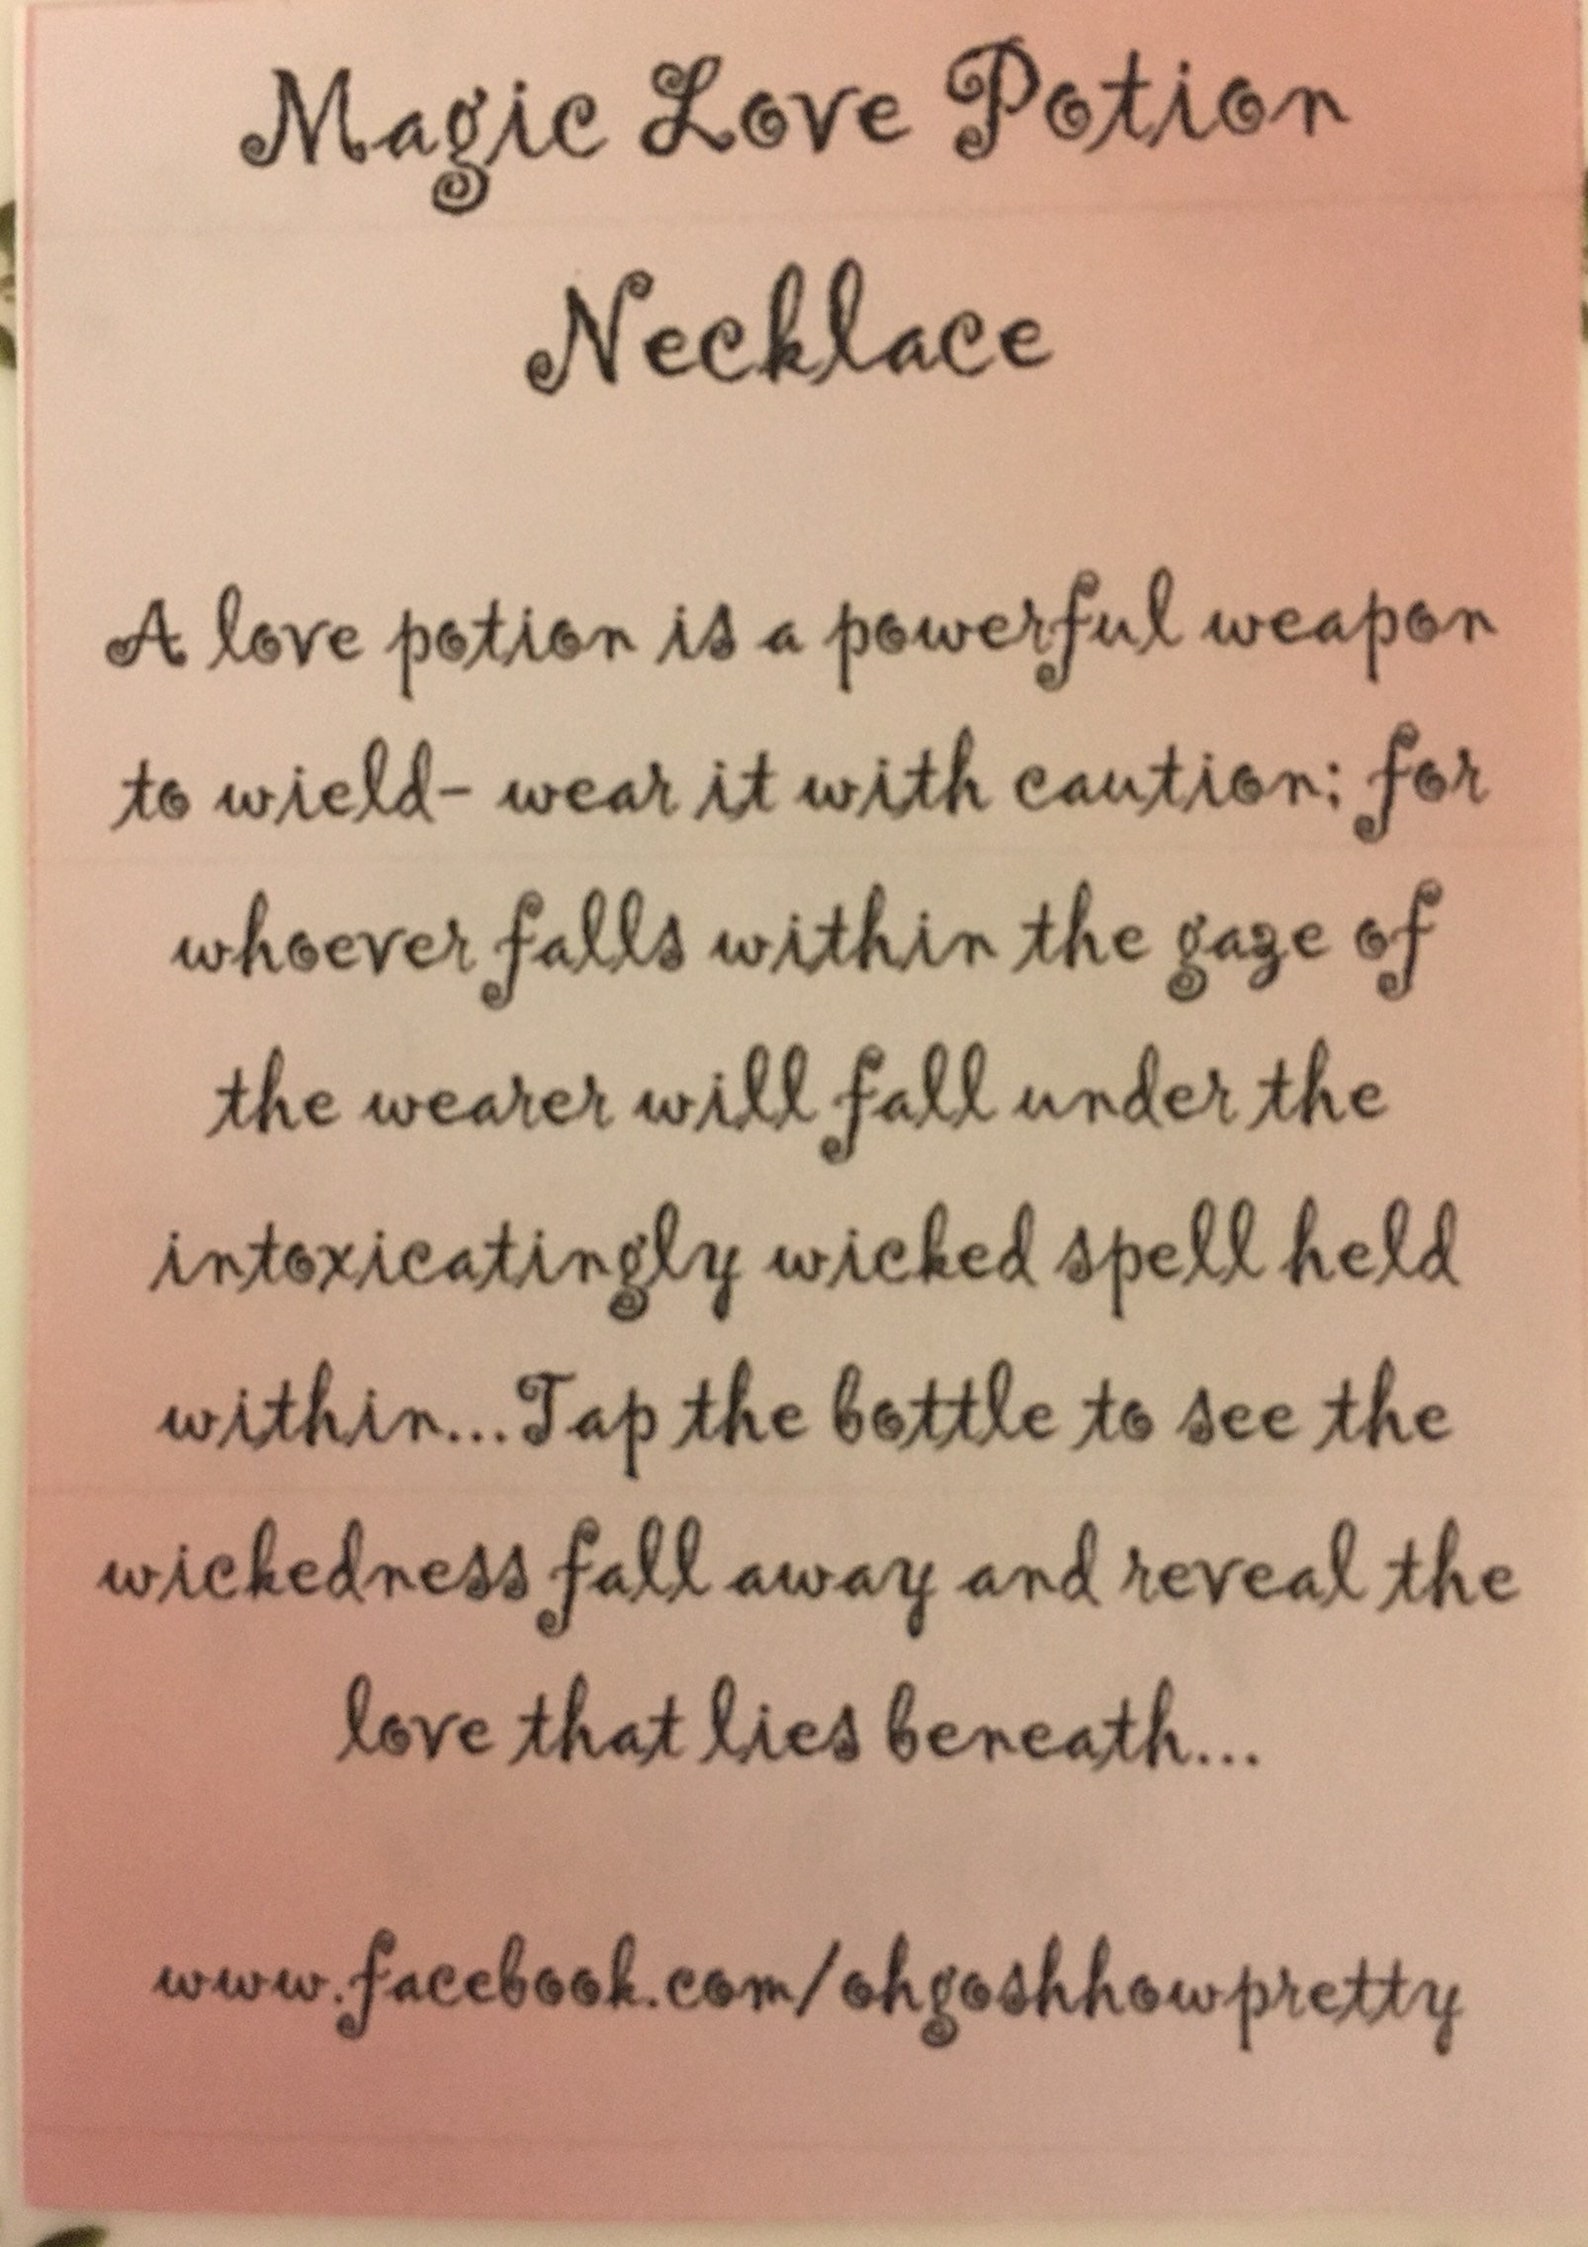 Magic Love Potion
Necklace
A love potion is a powerful weapon
to wield- wear it with caution; for
whoever falls within the gaze of
the wearer will fall under the
intoxicatingly wicked spell held
within...Tap the bottle to see the
wickedness fall away and reveal the
love that lies beneath...
www.facebook.com/ohgoshhowpretty